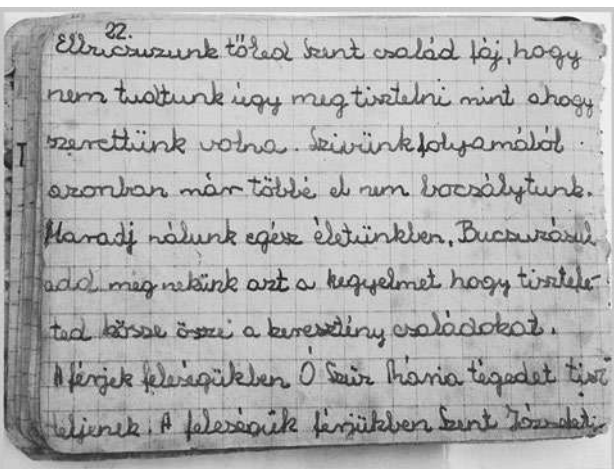 22.
Ellbucsuzunk tőled Szent család fáj, hogy
nem tudtunk úgy meg tisztelni mint ahogy
szerettünk volna. Szivünk folyamából
azonban már többé el nem bocsálytunk.
Maradj nálunk egész életünkben, Bucsuzásul
add meg nekünk azt a kegyelmet hogy tisztele-
ted kösse össze a keresztény családokat.
A férjek feleségükben Ó Szűz Mária tégedet tisz
teljenek. A feleségük férjükben Szent Józsefet